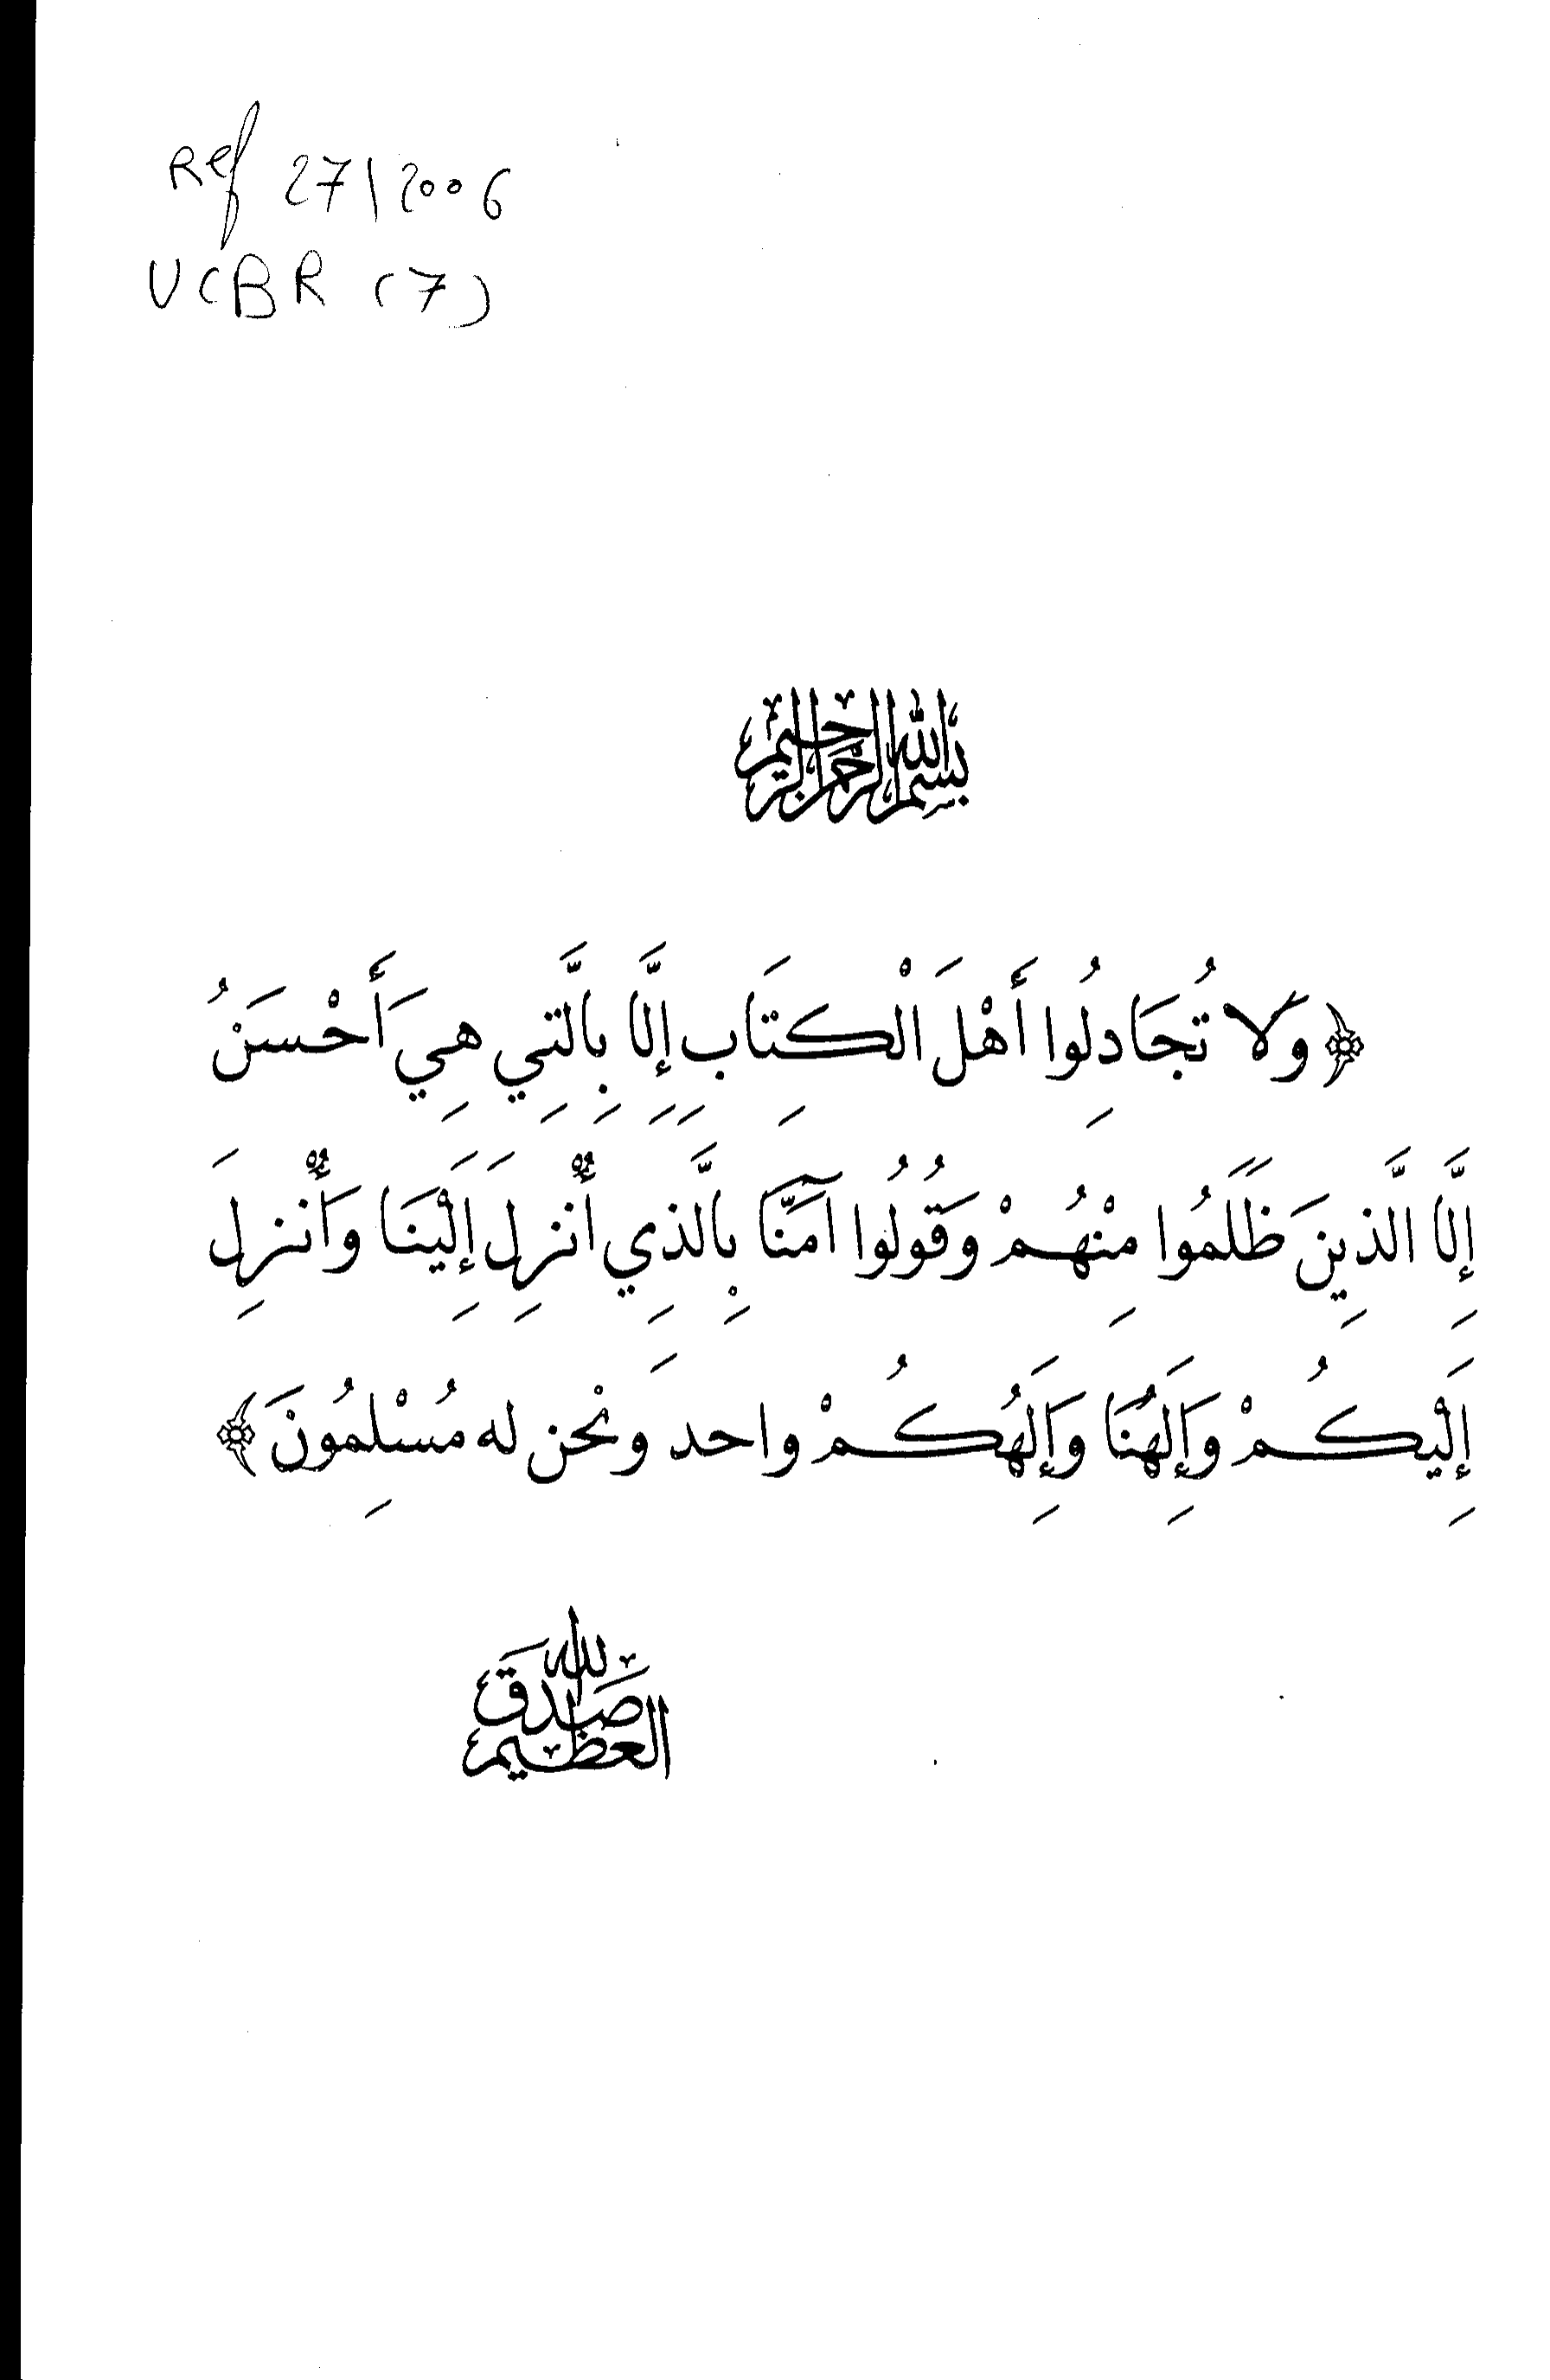 Ref 27/2006
UCBR (7)
بسم الله الرحمن الرحيم
﴿وَلَا تُجَادِلُوا أَهْلَ الْكِتَابِ إِلَّا بِالَّتِي هِيَ أَحْسَنُ
إِلَّا الَّذِينَ ظَلَمُوا مِنْهُمْ وَقُولُوا آمَنَّا بِالَّذِي أُنْزِلَ إِلَيْنَا وَأُنْزِلَ
إِلَيْكُمْ وَإِلَهُنَا وَإِلَهُكُمْ واحد ونَحْن له مُسْلِمُونَ﴾
صدق الله العظيم